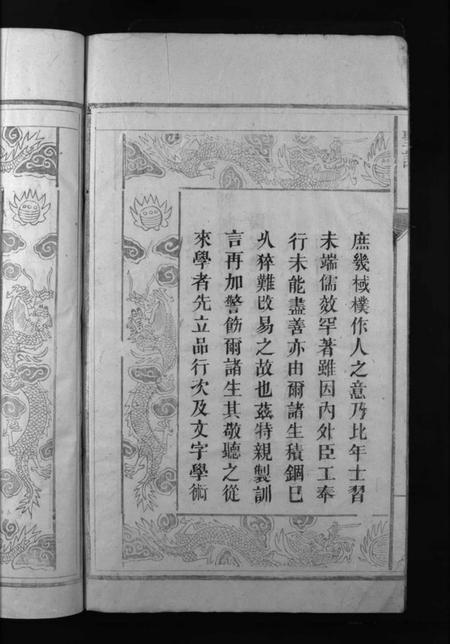 庶幾棫樸作人之意乃比年士習
未端儒效罕著雖因內外臣工奉
行未能盡善亦由爾諸生積錮已
久猝難改易之故也茲特親製訓
言再加警飭爾諸生其敬聽之從
來學者先立品行次及文字學術